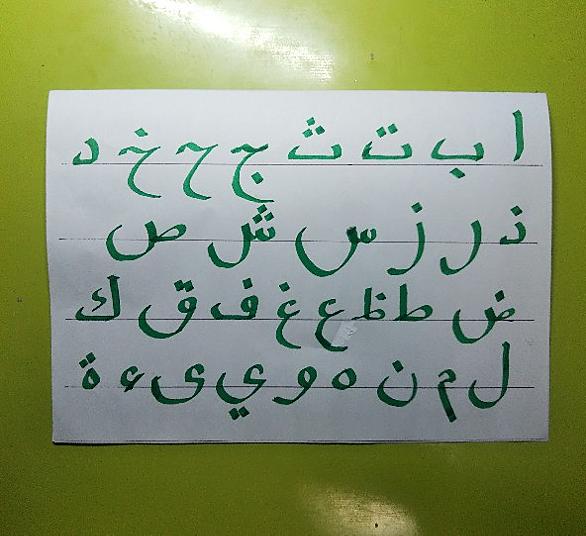 ا ب ت ث ج ح خ د
ذ ر ز س ش ص
ض ط ظ ع غ ف ق ك
ل م ن ه و ي ى ء ة